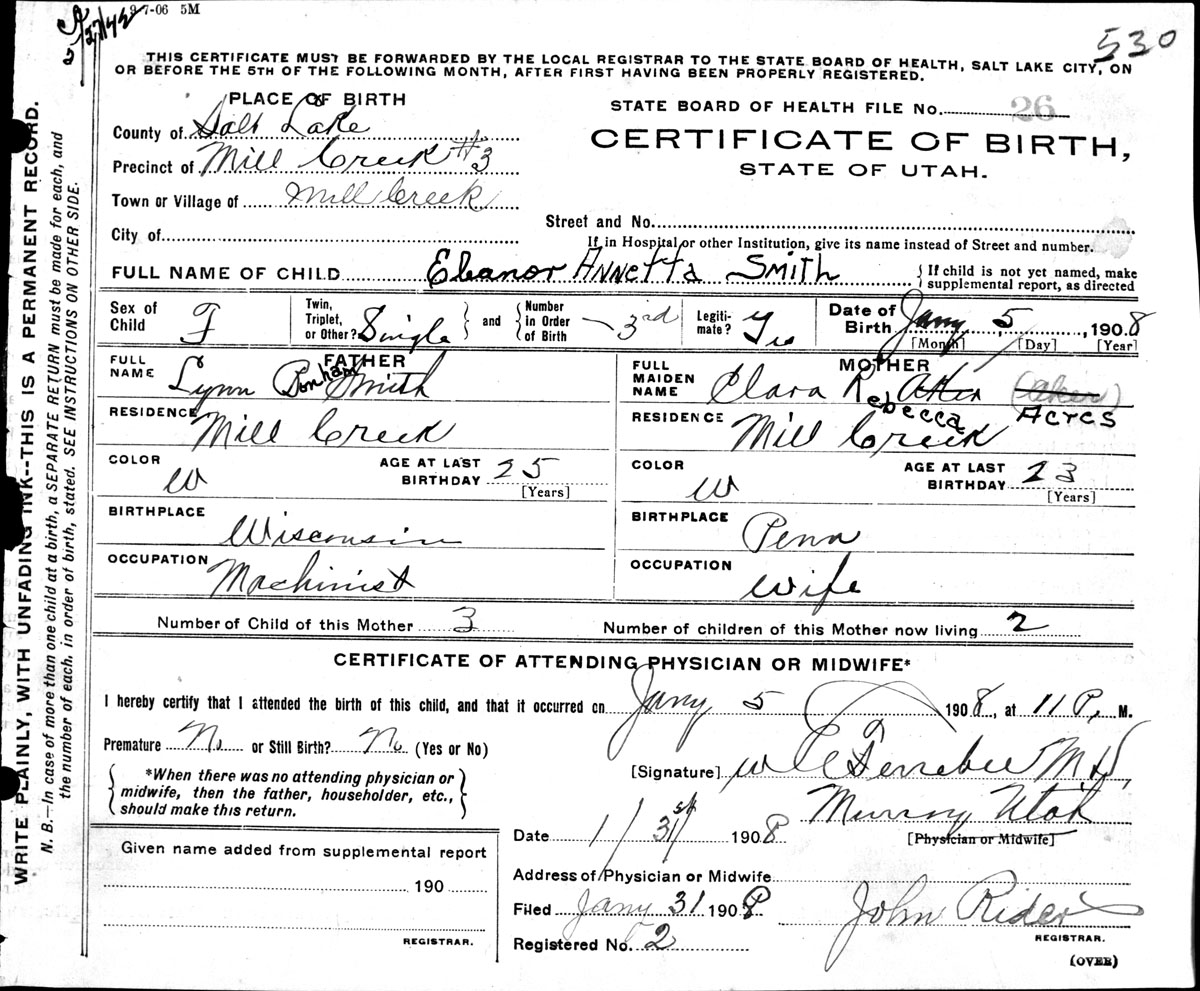 9-7-06 5M
2/27/42
530
THIS CERTIFICATE MUST BE FORWARDED BY THE LOCAL REGISTRAR TO THE STATE BOARD OF HEALTH, SALT LAKE CITY, ON
OR BEFORE THE 5TH OF THE FOLLOWING MONTH, AFTER FIRST HAVING BEEN PROPERLY REGISTERED.
WRITE PLAINLY, WITH UNFADING INK--THIS IS A PERMANENT RECORD.
N. B.—In case of more than one child at a birth, a SEPARATE RETURN must be made for each, and
the number of each, in order of birth, stated. SEE INSTRUCTIONS ON OTHER SIDE.
PLACE OF BIRTH
County of Salt Lake
Precinct of Mill Creek #3
Town or Village of Mill Creek
City of
STATE BOARD OF HEALTH FILE No. 26
CERTIFICATE OF BIRTH,
STATE OF UTAH.
Street and No.
If in Hospital or other Institution, give its name instead of Street and number.
FULL NAME OF CHILD Eleanor Annetta Smith { If child is not yet named, make
supplemental report, as directed
Sex of Child F
Twin, Triplet, or Other? Single } and { Number in Order of Birth 3rd
Legiti-mate? Yes
Date of Birth Jany 5, 1908
[Month] [Day] [Year]
FATHER
FULL NAME Lynn Bonham Smith
RESIDENCE Mill Creek
COLOR W AGE AT LAST BIRTHDAY 25
[Years]
BIRTHPLACE Wisconsin
OCCUPATION Machinist
MOTHER
FULL MAIDEN NAME Clara Rebecca Aker (aker) Acres
RESIDENCE Mill Creek
COLOR W AGE AT LAST BIRTHDAY 23
[Years]
BIRTHPLACE Penn
OCCUPATION Wife
Number of Child of this Mother 3 Number of children of this Mother now living 2
CERTIFICATE OF ATTENDING PHYSICIAN OR MIDWIFE*
I hereby certify that I attended the birth of this child, and that it occurred on Jany 5 1908, at 11 P. M.
Premature No or Still Birth? No (Yes or No)
{ *When there was no attending physician or
midwife, then the father, householder, etc.,
should make this return. }
[Signature] M.D.
Murray Utah
[Physician or Midwife]
Date 1/31st/ 1908
Given name added from supplemental report
190
REGISTRAR.
Address of Physician or Midwife
Filed Jany 31 1908 John Rider
Registered No. 2 REGISTRAR.
(OVER)